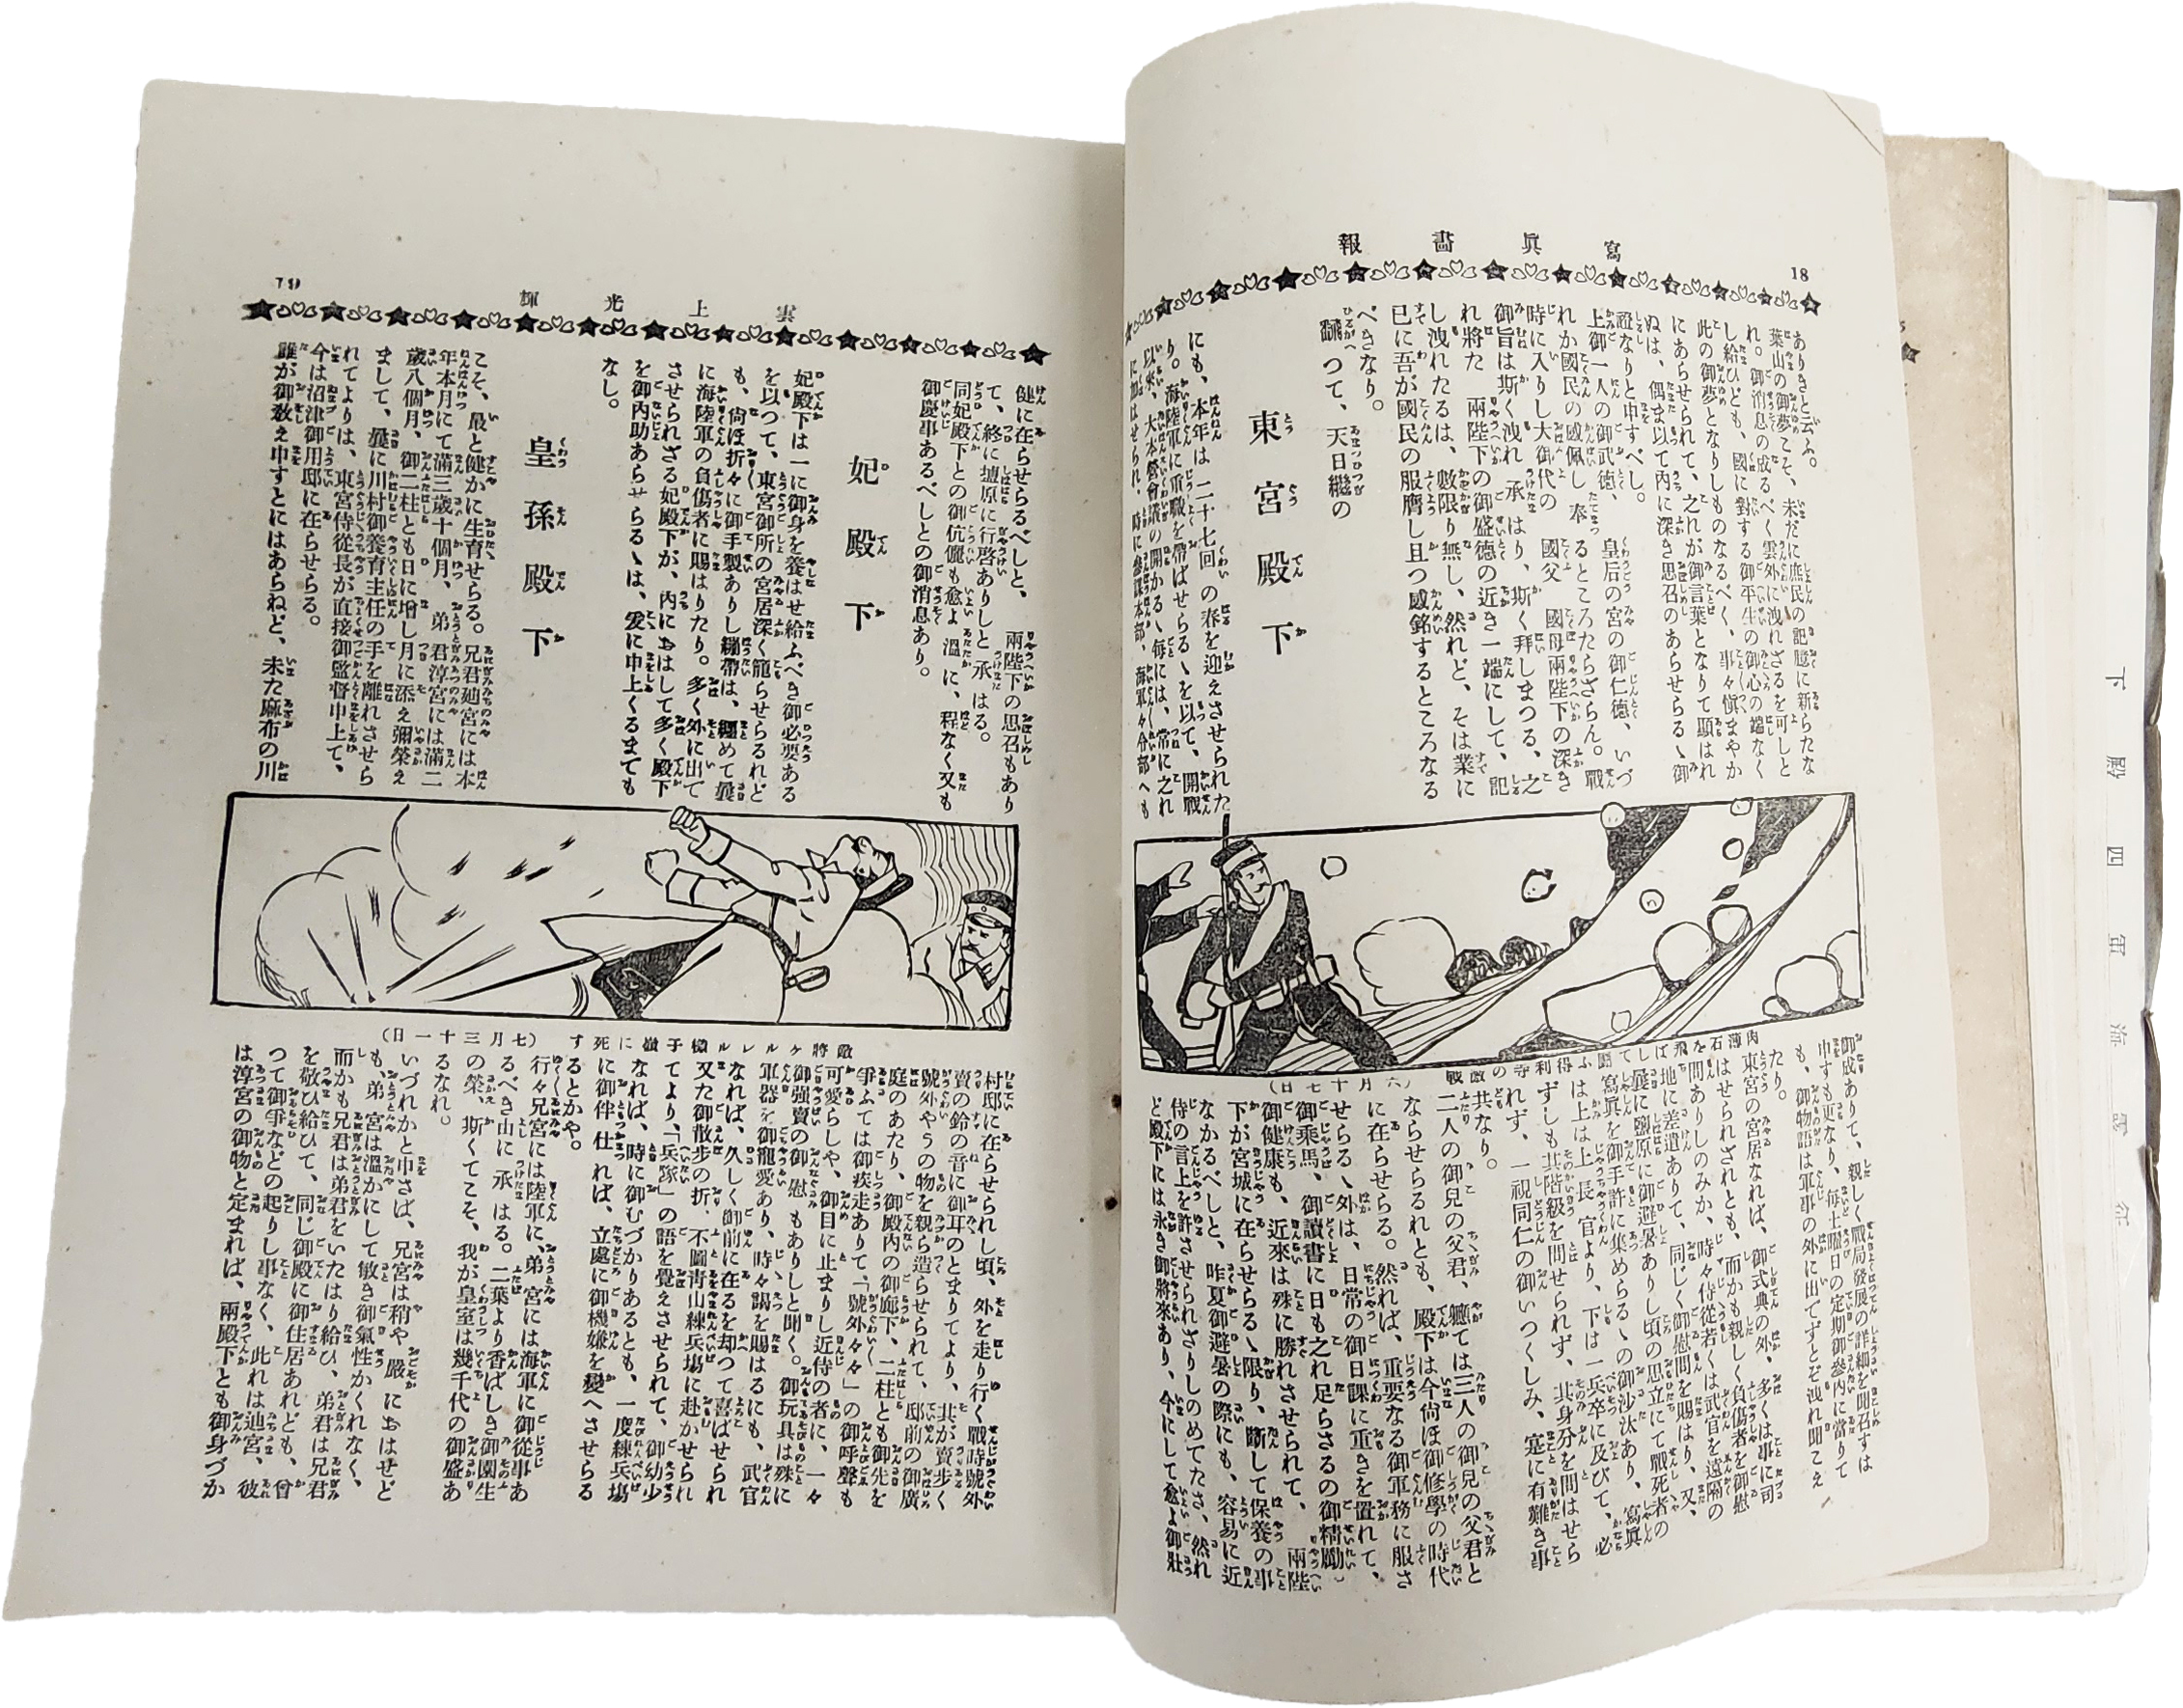 寫眞畵報
18
ありきと云ふ。
葉山の御夢こそ、未だに庶民の記臆に新らたな
れ。御消息の成るべく雲外に洩れざるを可しと
し給ひども、國に對する御平生の御心の端なく
此の御夢となりしものなるべく、事々愼まやか
にあらせられて、之れが御言葉となりて顯はれ
ぬは、偶ま以て內に深き思召のあらせらるゝ御
證なりと申すべし。
上御一人の御武德、皇后の宮の御仁德、いづ
れか國民の感佩し奉るところたらざらん。戰
時に入りし大御代の國父國母兩陛下の深き
御旨は斯く洩れ承はり、斯く拜しまつる、之
れ將た兩陛下の御盛德の近き一端にして、記
し洩れたるは、數限り無し、然れど、そは業に
已に吾が國民の服膺し且つ感銘するところなる
べきなり。
飜つて、天日繼の
東宮殿下
にも、本年は二十七回の春を迎えさせられた
り。海陸軍に軍職を帶ばせらるゝを以て、開戰
以來、大本營會議の開かるゝ每には、常に之れ
に加はせられ、時に參謀本部、海軍々令部へも
御成ありて、親しく戰局發展の詳細を聞召すは
申すも更なり、每土曜日の定期御參內に當りて
も、御物語は軍事の外に出てずとぞ洩れ聞こえ
たり。
東宮の宮居なれば、御式典の外、多くは事に司
はせられざれとも、而かも親しく負傷者を御慰
問ありしのみか、時々侍從若くは武官を遠隔の
地に差遣ありて、同じく御慰問を賜はり、又、
曩に鹽原に御避暑ありし頃の思立にて戰死者の
寫眞を御手許に集めらるゝの御沙汰あり、寫眞
は上は上長官より、下は一兵卒に及びて、必
ずしも其階級を問せられず、其身分を問はせら
れず、一視同仁の御いつくしみ、寔に有難き事
共なり。
二人の御兒の父君、軈ては三人の御兒の父君と
ならせらるれとも、殿下は今尙ほ御修學の時代
に在らせらる。然れば、重要なる御軍務に服さ
せらるゝ外は、日常の御日課に重きを置れて、
御乘馬、御讀書に日も之れ足らざるの御精勵、
御健康も、近來は殊に勝れさせられて、兩陛
下が宮城に在らせらるゝ限り、斷して保養の事
なかるべしと、昨夏御避暑の際にも、容易に近
侍の言上を許させられざりしのめてたさ、然れ
ど殿下には永き御將來あり、今にして愈よ御壯
肉薄石を飛ばして鬪ふ得利寺の敵戰
（六月十七日）
雲上光輝
19
健に在らせらるべしと、兩陛下の思召もあり
て、終に鹽原に行啓ありしと承はる。
同妃殿下との御伉儷も愈よ溫に、程なく又も
御慶事あるべしとの御消息あり。
妃殿下
妃殿下は一に御身を養はせ給ふべき御必要ある
を以つて、東宮御所の宮居深く籠らせらるれど
も、尙ほ折々に御手製ありし繃帶は、纒めて曩
に海陸軍の負傷者に賜はりたり。多く外に出て
させられざる妃殿下が、內におはして多く殿下
を御內助あらせらるゝは、爰に申上くるまでも
なし。
皇孫殿下
こそ、最と健かに生育せらる。兄君廸宮には本
年本月にて滿三歲十個月、弟君淳宮には滿二
歲八個月、御二柱とも日に增し月に添え彌榮え
まして、曩に川村御養育主任の手を離れさせら
れてよりは、東宮侍從長が直接御監督申上て、
今は沼津御用邸に在らせらる。
誰が御敎え申すとにはあらねど、未た麻布の川
村邸に在らせられし頃、外を走り行く戰時號外
賣の鈴の音に御耳のとまりてより、其が賣步く
號外やうの物を親ら造らせられて、邸前の御廣
庭のあたり、御殿內の御廊下、二柱とも御先を
爭ふては御疾走ありて、「號外々々」の御呼聲も
可愛らしや、御目に止まりし近侍の者に、一々
御强賣の御慰もありしと聞く。御玩具は殊に
軍器を御寵愛あり、時々謁を賜はるにも、武官
なれば、久しく御前に在るを却つて喜ばせられ
又た御散步の折、不圖靑山練兵場に赴かせられ
てより、「兵隊」の語を覺えさせられて、御幼少
なれば、時に御むづかりあるとも、一度練兵場
に御伴仕れば、立處に御機嫌を變へさせらる
るとかや。
行々兄宮には陸軍に、弟宮には海軍に御從事あ
るべき由に承はる。二葉より香ばしき御園生
の榮、斯くてこそ、我が皇室は幾千代の御盛あ
るなれ。
いづれかと申さば、兄宮は稍や嚴におはせど
も、弟宮は溫かにして敏き御氣性かくれなく、
而かも兄君は弟君をいたはり給ひ、弟君は兄君
を敬ひ給ひて、同じ御殿に御住居あれども、曾
つて御爭などの起りし事なく、此れは廸宮、彼
は淳宮の御物と定まれば、兩殿下とも御身づか
敵將ケルレル樣子嶺に死す（七月三十一日）